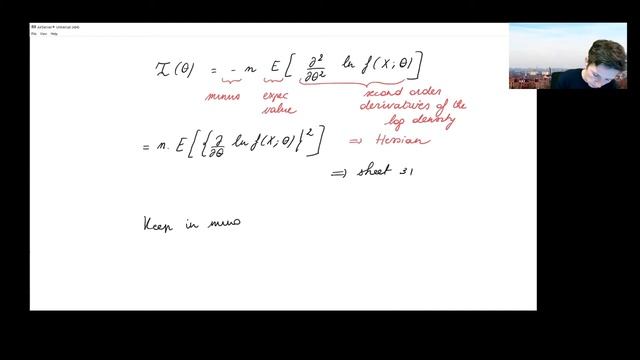 AirServer® Universal (x64)
File View Help
I(θ) = - n E[ ∂²/∂θ² ln f(X;θ)]
minus expec value second order derivatives of the log density
= n. E[{∂/∂θ ln f(X;θ)}²] ⇒ Hessian
⇒ sheet 31
Keep in mind